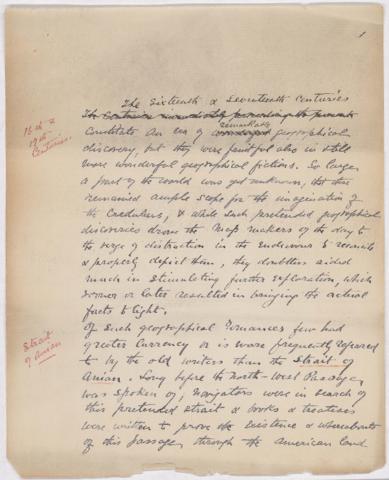 1
The Sixteenth & Seventeenth Centuries
The Centuries immediately preceding the present
remarkable
Constitute an era of wonderful geographical
discovery, but they were fruitful also in still
more wonderful geographical fictions. So large
a part of the world was yet unknown, that there
remained ample scope for the imagination of
the Credulous, & while such pretended geographical
discoveries drove the Map makers of the day to
the verge of distraction in the endeavour to reconcile
& properly depict them, they doubtless aided
much in stimulating further exploration, which
sooner or later resulted in bringing the actual
facts to light.
Of such geographical romances few had
greater currency or is more frequently referred
to by the old writers than the Strait of
Anian. Long before the North-West Passage
was spoken of, navigators were in search of
this pretended Strait & books & treatises
were written to prove the existence & whereabouts
of this passage through the American land
16th &
17th
Centuries.
Strait
of Anian